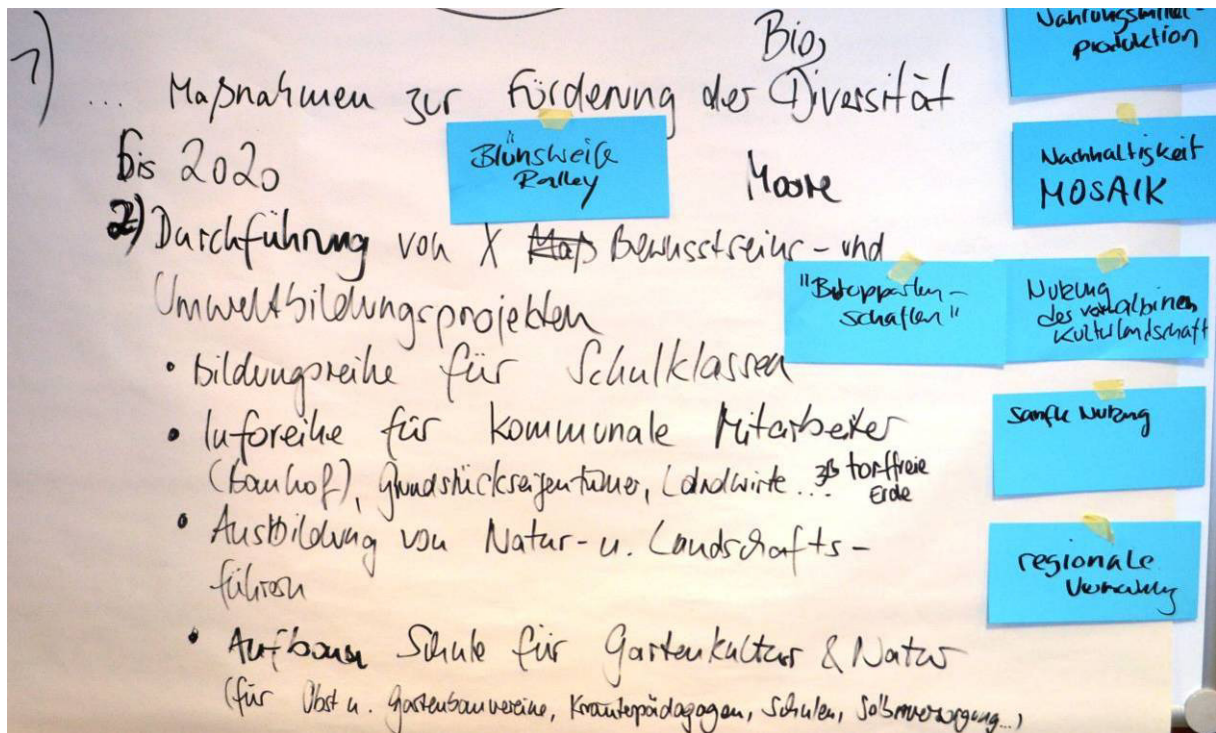 1)
... Maßnahmen zur Förderung der Bio, Diversität
bis 2020
Moore
2) Durchführung von X Maß Bewusstseins- und
Umweltbildungsprojekten
• Bildungsreihe für Schulklassen
• Inforeihe für kommunale Mitarbeiter
(Bauhof), Grundstückseigentümer, Landwirte ... zB torffreie
Erde
• Ausbildung von Natur- u. Landschafts-
führern
• Aufbau Schule für Gartenkultur & Natur
(für Obst u. Gartenbauvereine, Kräuterpädagogen, Schulen, Selbstversorgung...)
Ralley
Nahrungsmittel-
produktion
Nachhaltigkeit
MOSAIK
schaften"
Nutzung
der voralpinen
Kulturlandschaft
sanfte Nutzung
regionale